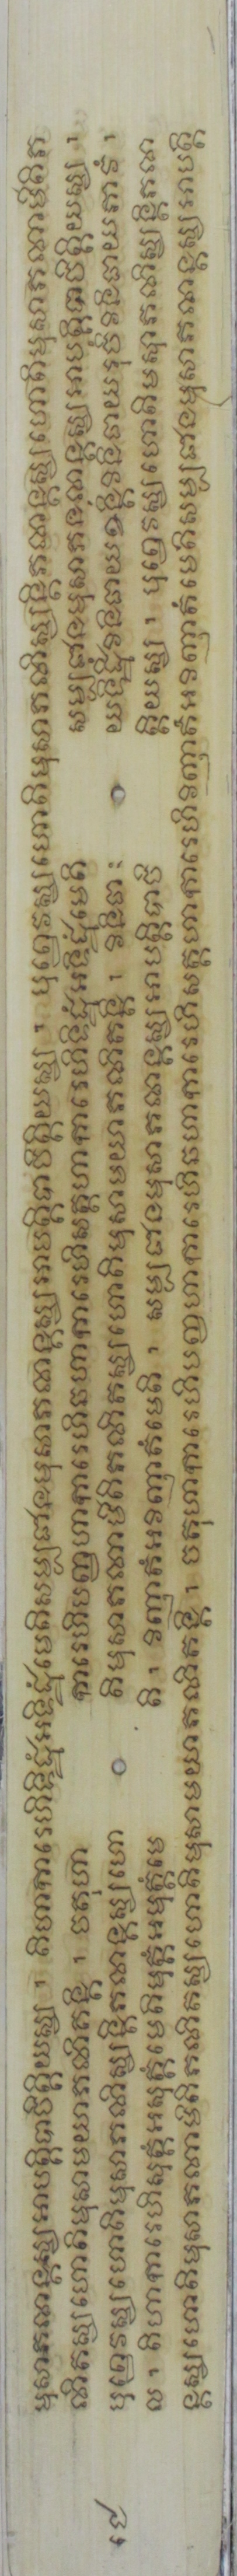 មុសាភណន្តស្សអាបត្តិបាចិត្តិយស្ស ។ តិហាការេហិទិដ្ឋំអទិដ្ឋំមេតិសម្បជានមុសាភណន្តស្សអាបត្តិបាចិត្តិយស្ស ។ បុព្ពេវស្សហោតិមុសាភណិស្សន្តិភណន្តស្សហោតិមុសាភណាមីតិភ
ណិតស្សហោតិមុសាមយាភណិតន្តិ ។ ចតុហា ការេហិបញ្ចហាការេហិឆហាការេហិសត្តហាការេហិទិដ្ឋំអទិដ្ឋំមេតិ សម្បជានមុសាភនណន្តស្សអាបត្តិបាចិត្តិយស្ស ។
បុព្ពេវស្សហោតិមុសាភណិស្សន្តិភណន្តស្សហោ តិមុសាភណាមីតិភណិតស្សហោតិមុសាមយាភណិតន្តិ ។ វិនិធា យទិដ្ឋិំវិនិធាយខន្តិំវិនិធាយរុចិំវិនិធាយភាវំ ។
ល ។ តិហាការេហិសុត្តំអសុត្តំមេតិមុត្តំអមុត្តំមេ តិ ។ វិញ្ញាតំអវិញ្ញាតំមេតិ ។ សម្បជានមុសាភណន្តស្សអាបត្តិបាចិ ត្តិយស្ស ។ បុព្ពេវស្សហោតិមុសាភណិស្សន្តិភណ
ន្តស្សហោតិមុសាភណាមីតិភណិតស្សហោតិមុសាមយាភណិតន្តិ ។ ចតុហាការេហិបញ្ចហាការេហិឆហាការេហិសត្តហាការេហិវិញ្ញាតំអវិញ្ញាតំមេតិសម្បជានមុសាភណន្តស្សអាបត្តិ